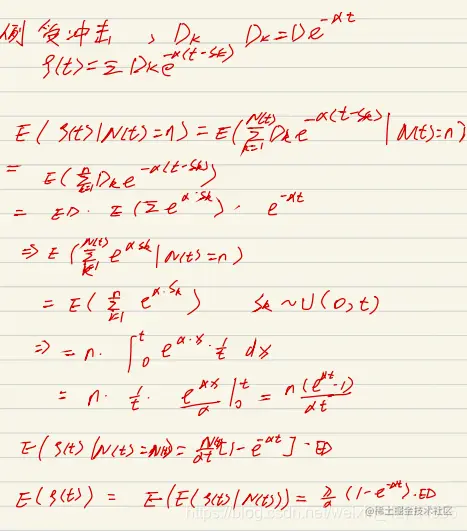 例 受冲击 , Dk Dk=De^{-αt}
ξ(t)=Σ Dk e^{-α(t-Sk)}
E(ξ(t)|N(t)=n) = E(Σ_{k=1}^{N(t)} Dk e^{-α(t-Sk)} | N(t)=n)
= E(Σ_{k=1}^{n} Dk e^{-α(t-Sk)})
= ED · E(Σ e^{α·Sk}) · e^{-αt}
⇒ E(Σ_{k=1}^{N(t)} e^{α Sk} | N(t)=n)
= E(Σ_{k=1}^{n} e^{α·Sk}) Sk ~ U(0,t)
⇒ = n · ∫_0^t e^{α·x} · 1/t dx
= n · 1/t · e^{αx}/α |_0^t = n(e^{αt}-1)/αt
E(ξ(t)|N(t)=N(t)) = N(t)/αt [1-e^{-αt}] · ED
E(ξ(t)) = E(E(ξ(t)|N(t))) = λ/α (1-e^{-αt}) · ED
@稀土掘金技术社区